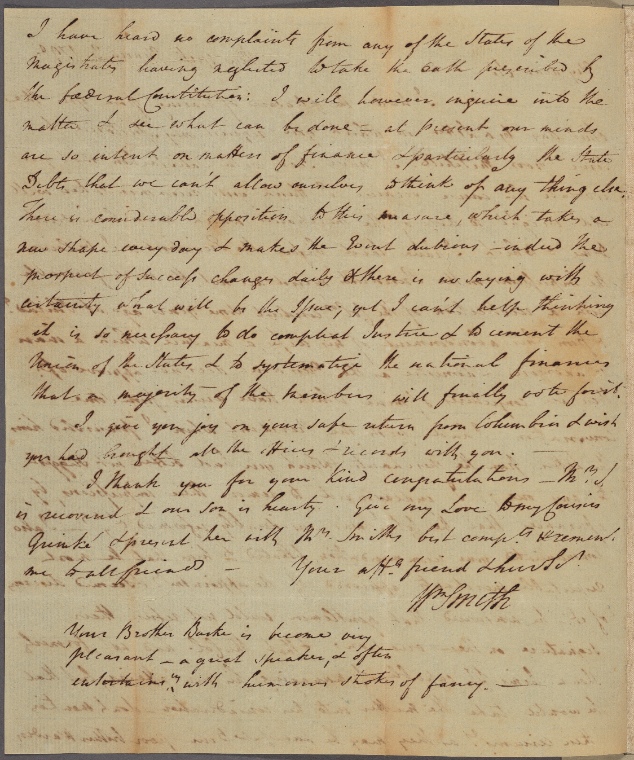 I have heard no complaints from any of the States of the
Magistrates having neglected to take the Oath prescribed by
the fœderal Constitution: I will however inquire into the
matter & see what can be done – at present our minds
are so intent on matters of finance & particularly the State
Debts that we can't allow ourselves to think of any thing else.
There is considerable opposition to this measure, which takes a
new shape every day & makes the Event dubious – indeed the
prospect of success changes daily & there is no saying with
certainty what will be the Issue; yet I can't help thinking
it is so necessary to do compleat Justice & to cement the
Union of the States & to systematize the national finances
that a majority of the members will finally vote for it.
I give you joy on your safe return from Columbia & wish
you had brought all the Offices & records with you. —
I thank you for your kind congratulations – Mrs. S.
is recovered & our son is hearty. Give my Love to my Cousin
Grimké & present her with Mrs. Smiths best compts. & remem.
me to all friends – Your affte. friend & hum. Sr.
Wm Smith
Your Brother Burke is become very
pleasant – a great speaker, & often
entertains us with humorous strokes of fancy. —